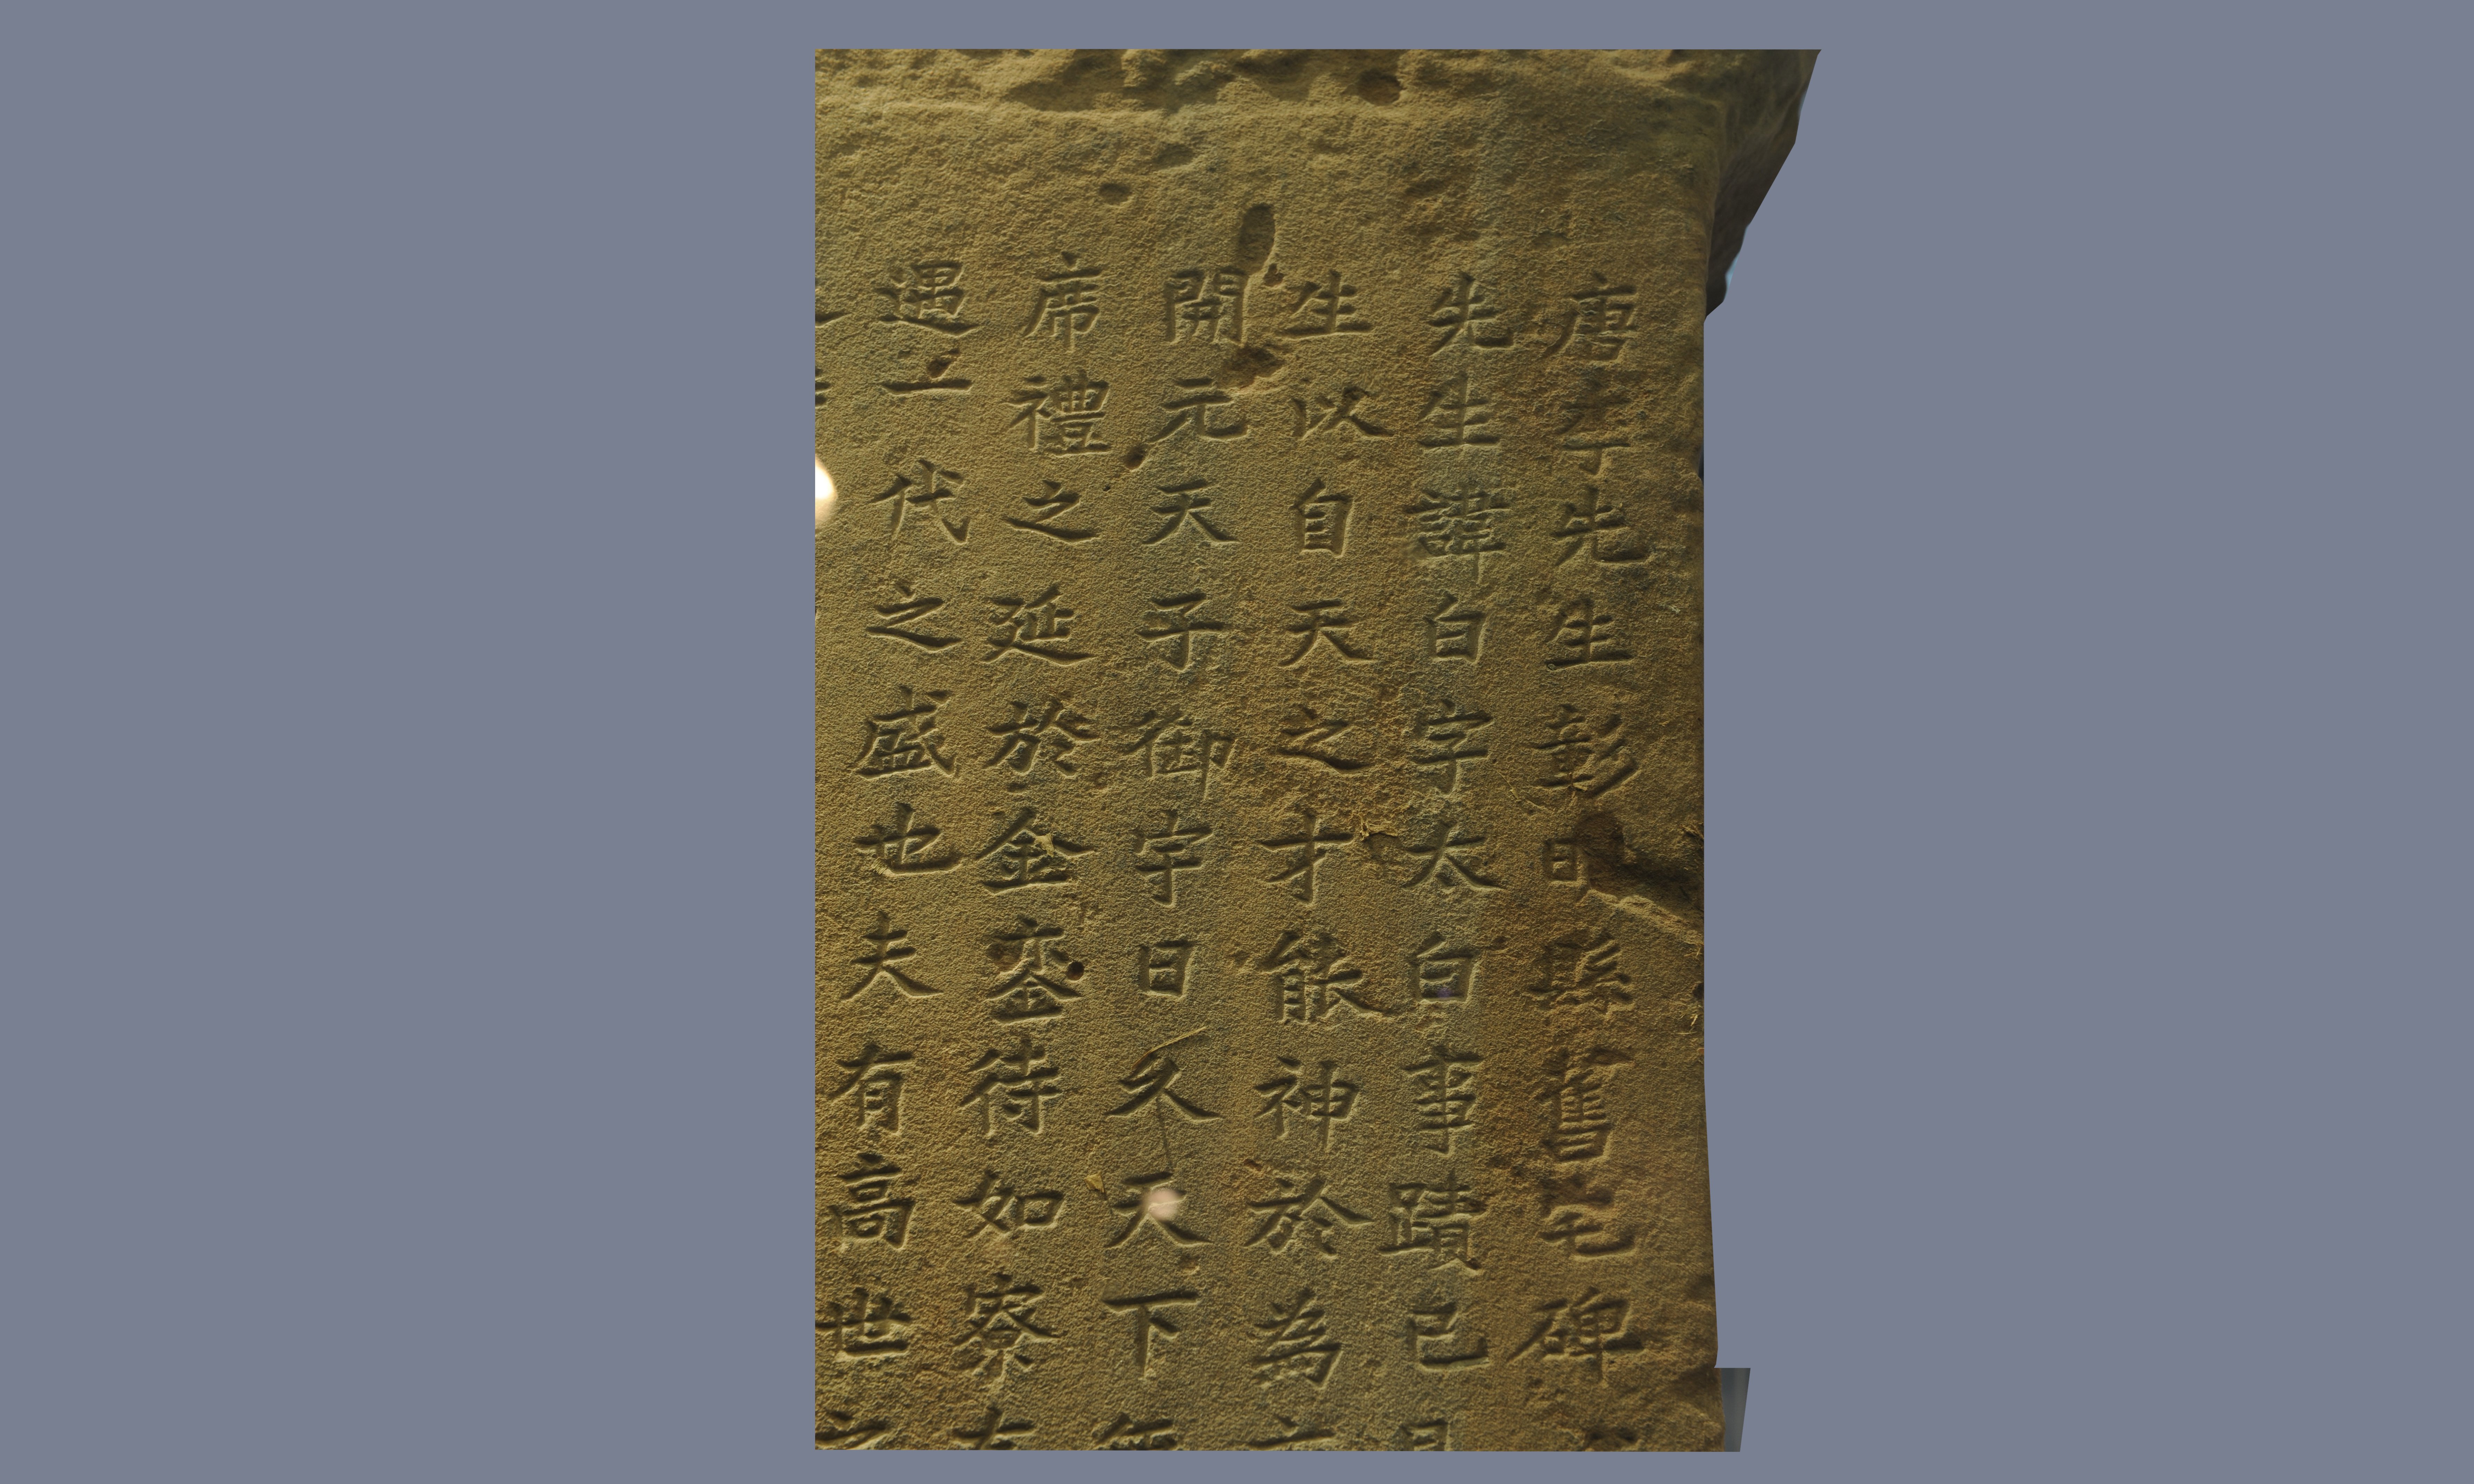 唐李先生彰明縣舊宅碑
先生諱白字太白事蹟已
生以自天之才能神於為
開元天子御宇日久天下
席禮之延於金鑾待如寮
遇一代之盛也夫有高世之